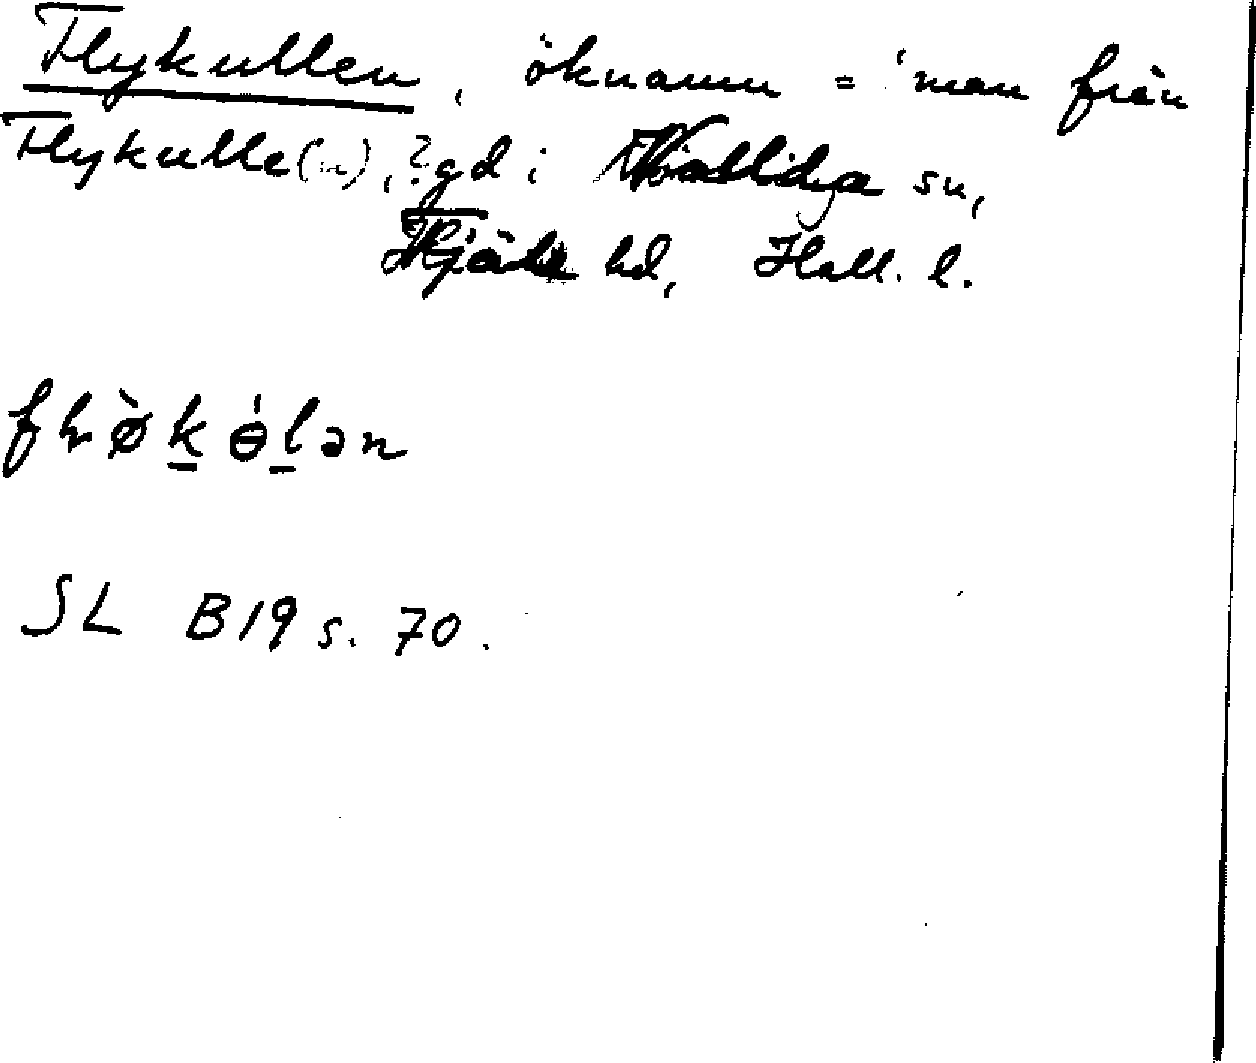 Flykullen, öknamn = 'man från
Flykulle(n), ?gd i sn,
Fjäre hd, Hall. l.
fɬø̀k̲ɵ́l̲ən
SL B19 s. 70.